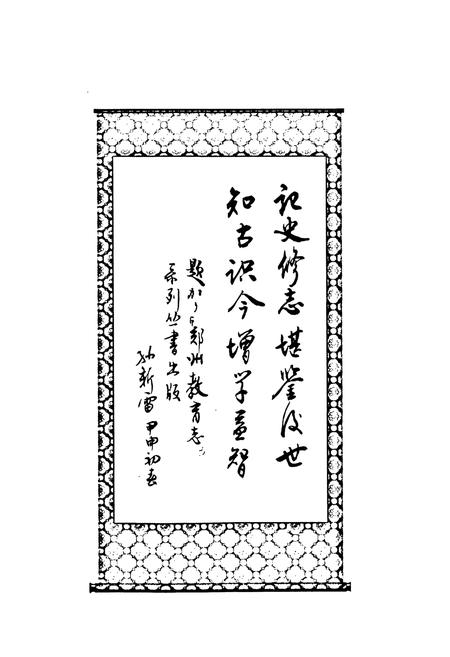 记史修志堪鉴后世
知古识今增学益智
题《郑州教育志》
系列丛书出版
孙新雷甲申初春